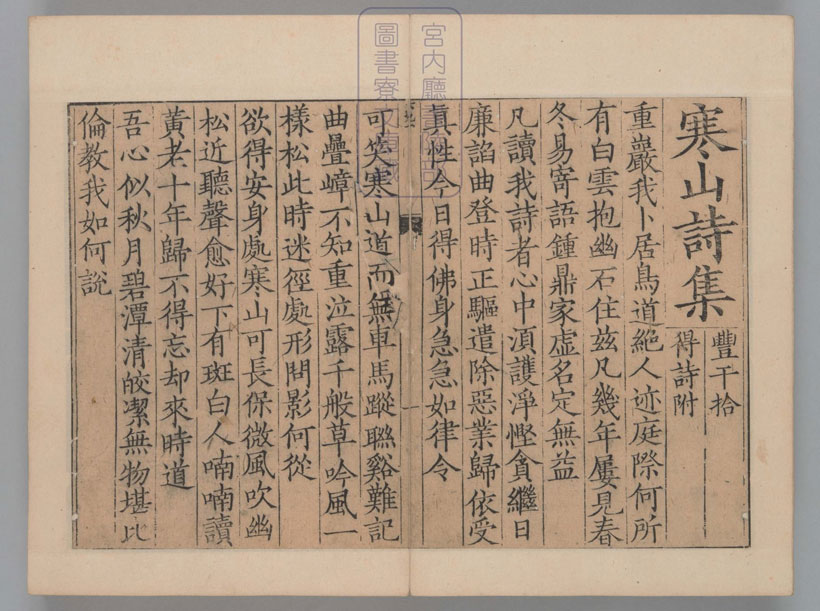 寒山詩集
豐干拾
得詩附
重巖我卜居鳥道絕人迹庭際何所
有白雲抱幽石住兹凡幾年屢見春
冬易寄語鍾鼎家虛名定無益
凡讀我詩者心中湏護淨慳貪繼日
廉諂曲登時正驅遣除惡業歸依受
真性今日得佛身急急如律令
可笑寒山道而無車馬蹤聮谿難記
曲疊嶂不知重泣露千般草吟風一
樣松此時迷徑處形問影何從
欲得安身處寒山可長保微風吹幽
松近聽聲愈好下有斑白人喃喃讀
黃老十年歸不得忘却來時道
吾心似秋月碧潭清皎潔無物堪比
倫教我如何說
宮內廳
圖書寮
一